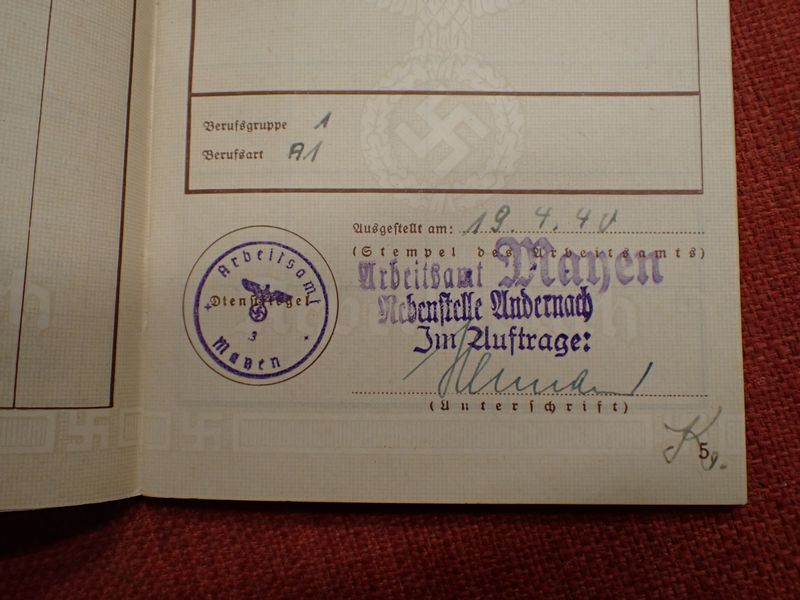 Berufsgruppe 1
Berufsart A1
Ausgestellt am: 19.4.40
(Stempel des Arbeitsamts)
Arbeitsamt Mayen
Nebenstelle Andernach
Im Auftrage:
(Unterschrift)
Arbeitsamt
Dienstsiegel
3
Mayen
5